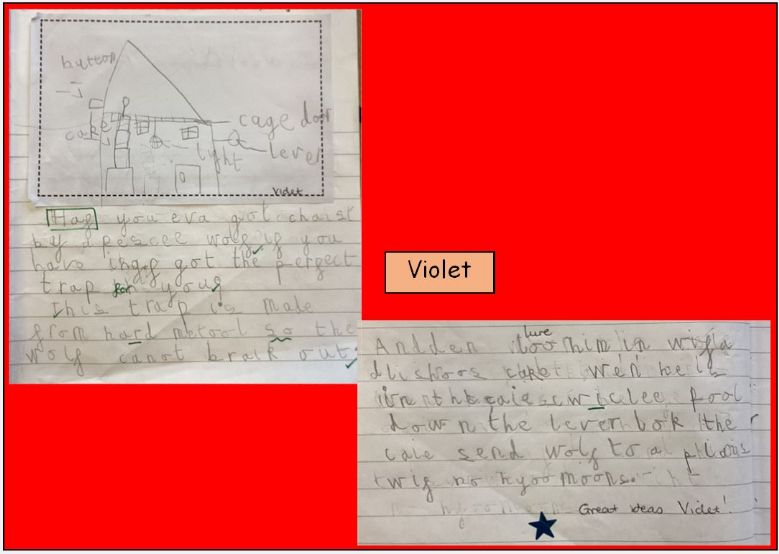 button
cake
cage door
light
lever
Violet
Haf you eva got chaist
by a pescee wolf if you
have ing got the perfect
trap for you
This trap is made
from hard metool so the
wolf canot brack out
Violet
And den lure him in wif a
dlishoos cake wen he is
in the caie
down the lever lok the
caie send wolf to a
wif no hyoomoons.
Great ideas Violet!